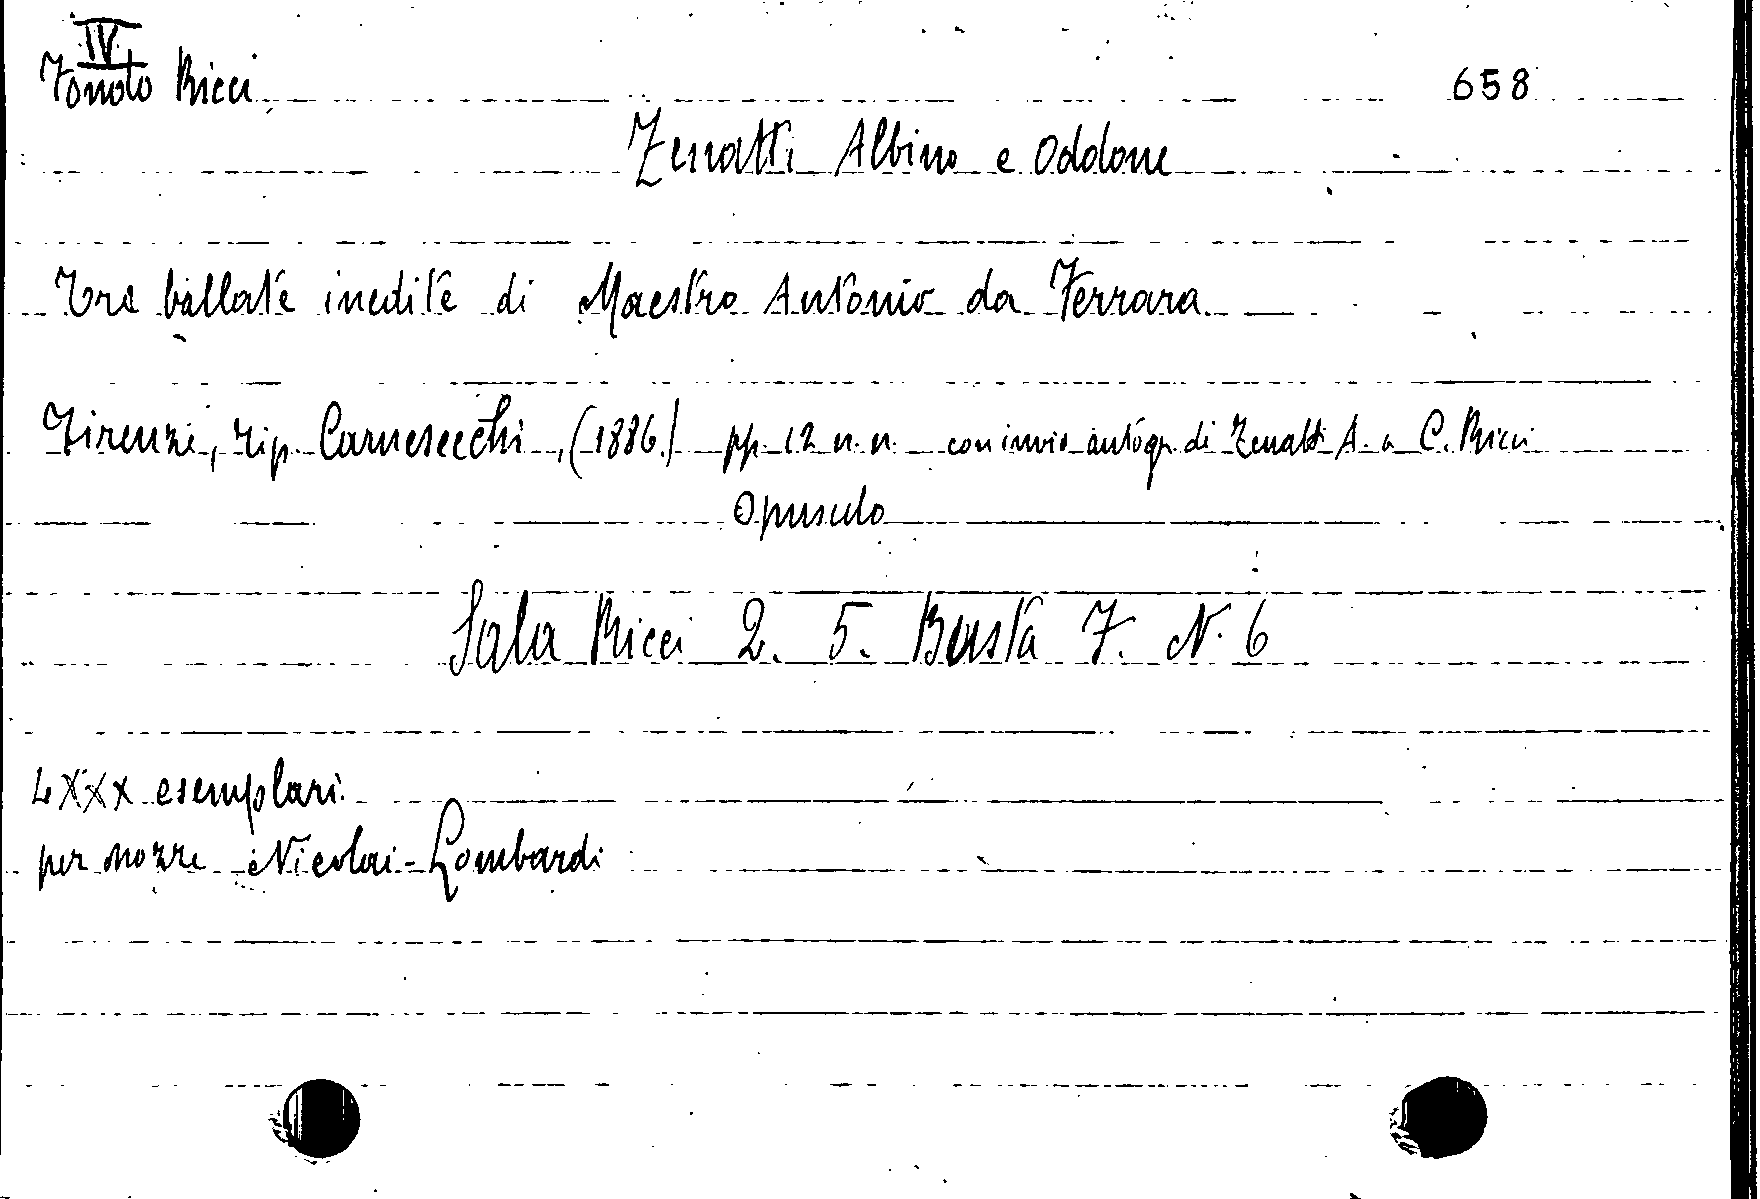 IV
Fondo Ricci 658
Zenatti Albino e Oddone
Tre ballate inedite di Maestro Antonio da Ferrara
Firenze, Tip. Carnesecchi, (1886) pp. 12 n.n. con invio autogr. di Zenatti A. a C. Ricci
Opusculo
Sala Ricci 2. 5. Busta 7. N. 6
LXXX esemplari.
per nozze Nicolai-Lombardi